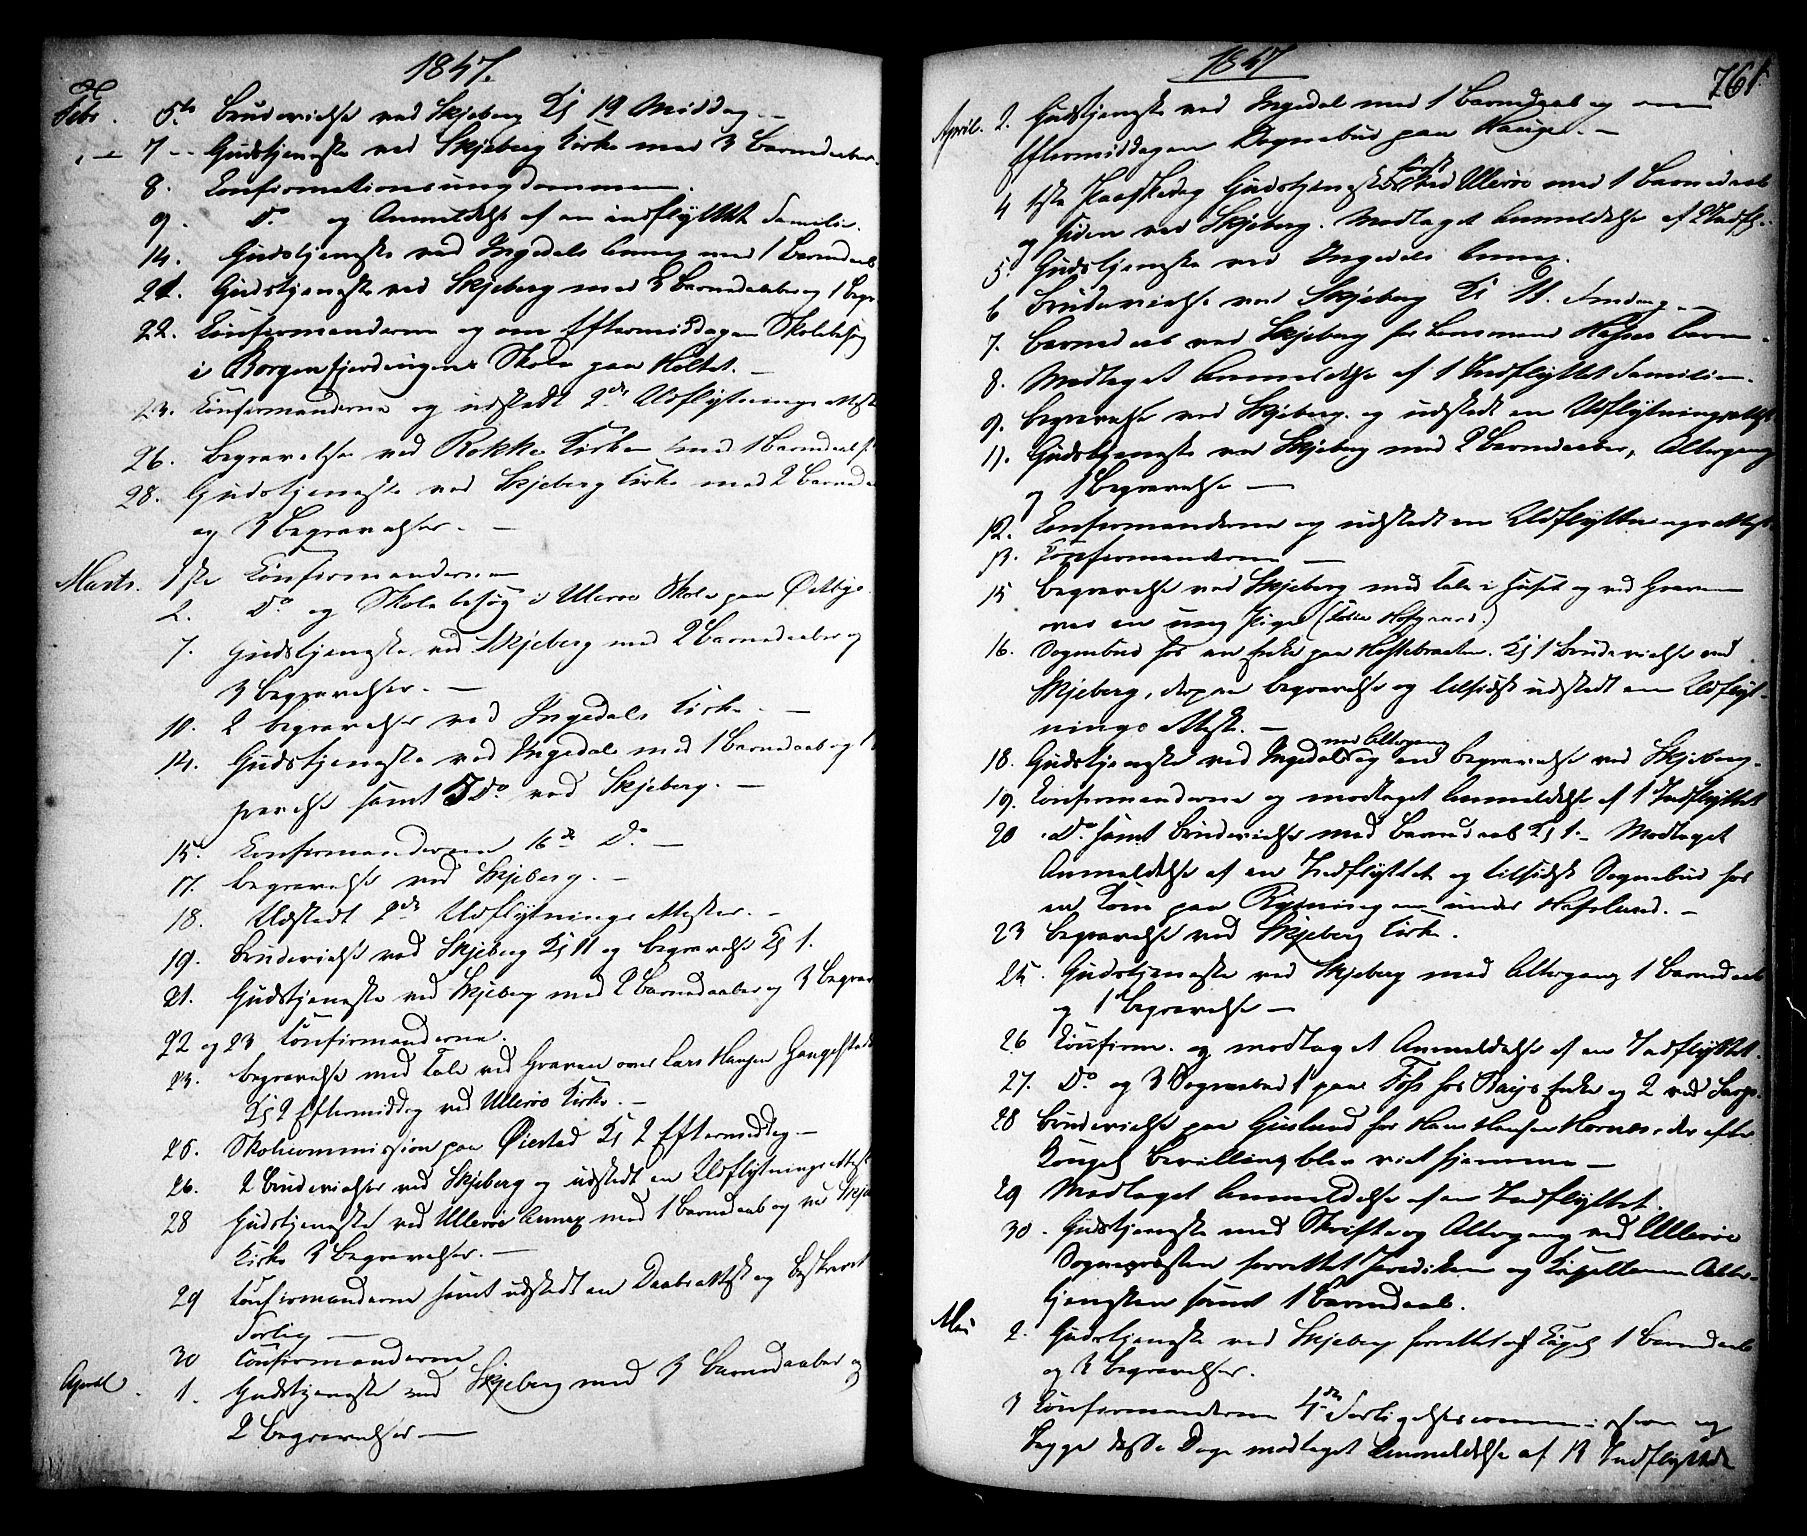 1847.
Febr. 5te Brudevielse ved Skjeberg Kl 12 Middag. –
7 – Gudstjeneste ved Skjeberg Kirke med 3 Barnedaaber.
8. Confirmationsungdommen.
9. Do og Anmeldelse af en indflyttet Familie.
14. Gudstjeneste ved Ingedals Annex med 1 Barnedaab
21. Gudstjeneste ved Skjeberg med 3 Barnedaaber og 1 Begr
22. Confirmanderne og om Eftermiddagen Skolebesøg
i Borgenfjerdingens Skole paa Holtet. –
23. Confirmanderne og udstedt 2de Udflytnings Attest
26. Begravelse ved Rokke Kirke med 1 Barnedaab
28. Gudstjeneste ved Skjeberg Kirke med 2 Barned
og 3 Begravelser. –
Marts. 1ste Confirmanderne
2. Do og Skolebesøg i Ullerøe Skole paa
7. Gudstjeneste ved Skjeberg med 2 Barnedaaber og
3 Begravelser. –
10. 2 Begravelser ved Ingedals Kirke. –
14. Gudstjeneste ved Ingedal med 1 Barnedaab og 1
gravelse samt 3 Do ved Skjeberg. –
15. Confirmanderne 16de Do –
17. Begravelse ved Skjeberg. –
18. Udstedt 2de Udflytnings Attester. –
19. Brudevielse ved Skjeberg Kl 11 og Begravelse Kl 1.
21. Gudstjeneste ved Skjeberg med 2 Barnedaaber og 3 Begrav
22 og 23 Confirmanderne.
23. Begravelse med Tale ved Graven over Lars Hansen
Kl 2 Eftermiddag ved Ullerøe Kirke. –
25. Skolecommission paa Øiestad Kl 2 Eftermiddag –
26. 2 Brudevielser ved Skjeberg og udstedt en Udflytnings Attest
28 Gudstjeneste ved Ullerøe Annex med 1 Barnedaab og ved Skje
Kirke 3 Begravelser. –
29 Confirmanderne samt udstedt en Daabsattest og
Forlig –
30 Confirmanderne
April. 1. Gudstjeneste ved Skjeberg med 3 Barnedaaber og
2 Begravelser –
1847
761.
April. 2. Gudstjeneste ved Ingedal med 1 Barnedaab og om
Eftermiddagen Sognebud paa Hauge. –
4 1ste Paaskedag Gudstjeneste først ved Ullerøe med 1 Barnedaab
og siden ved Skjeberg. Modtaget Anmeldelse af 2 Indfl.
5. Gudstjeneste ved Ingedals Annex.
6 Brudevielse ved Skjeberg Kl 11.
7. Barnedaab ved Skjeberg for Lensmand Barn.
8. Modtaget Anmeldelse af 1 Indflyttet Familie.
9. Begravelse ved Skjeberg. og udstedt en Udflytningsattest
11. Gudstjeneste ved Skjeberg med 2 Barnedaaber, Altergang
og 1 Begravelse –
12. Confirmanderne og udstedt en Udflytningsattest
13. Confirmanderne –
15 Begravelse ved Skjeberg med Tale i Huset og ved Graven
over en ung Pige ( Hofgaard.)
16. Sognebud hos en Enke paa Kl 1 Brudevielse ved
Skjeberg, derpaa Begravelse og tilsidst udstedt en Udflyt-
nings Attest. –
18. Gudstjeneste ved Ingedal med Altergang og en Begravelse ved Skjeberg.
19. Confirmanderne og modtaget Anmeldelse af 1 Indflyttet
20 Do samt Brudevielse med Barnedaab Kl 1. – Modtaget
Anmeldelse af en Indflyttet og tilsidst Sognebud hos
en Kone paa under Hafslund. –
23 Begravelse ved Skjeberg Kirke.
25. Gudstjeneste ved Skjeberg med Altergang 1 Barnedaab
og 1 Begravelse –
26 Confirm. og modtaget Anmeldelse af en Indflyttet.
27. Do og 3 Sognebud 1 paa hos Enke og 2 ved Sarps
28 Brudevielse paa Guslund for Hans Hansen Hornes, der efter
Kongel Bevilling blev viet hjemme –
29 Modtaget Anmeldelse af en Indflyttet.
30. Gudstjeneste med Skrifte og Altergang ved Ullerøe
Sognepræsten forrettet Prædiken og Capellanen Alter-
tjenesten samt 1 Barnedaab.
Mai 2. Gudstjeneste ved Skjeberg forrettet af Capel. 1 Barnedaab
og 3 Begravelser.
3 Confirmanderne 4de Forligelsescommission og
begge disse Dage modtaget Anmeldelse af 13 Indflyttede